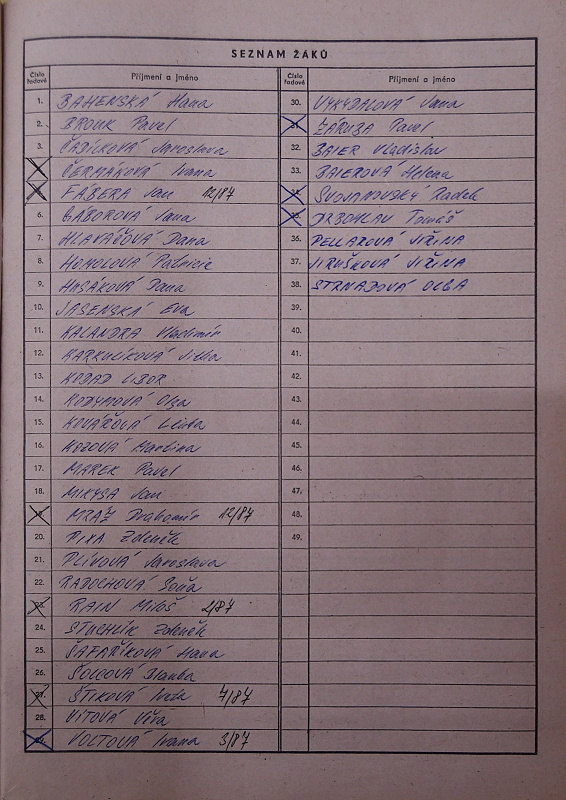 SEZNAM ŽÁKŮ
Číslo řadové Příjmení a jméno
1. BAHENSKÁ Hana
2. BROUK Pavel
3. ČABÍLKOVÁ Jaroslava
ČERMÁKOVÁ Ivana
FÁBERA Jan 12/87
6. GÁBOROVÁ Jana
7. HLAVÁČOVÁ Dana
8. HOMOLOVÁ Patricie
9. HUSÁKOVÁ Jana
10. JASENSKÁ Eva
11. KALANDRA Vladimír
12. KARKULÍKOVÁ Jitka
13. KOBAD LIBOR
14. KODYMOVÁ Olga
15. KOVÁŘOVÁ
16. KOZOVÁ Martina
17. MAREK Pavel
18. MIKYSA Jan
19. MRÁZ Drahomír 12/87
20. PIXA Zdeněk
21. PLÍVOVÁ Jaroslava
22. RADOCHOVÁ Soňa
23. RAIN Miloš 2/87
24. STUCHLÍK Zdeněk
25. ŠAFAŘÍKOVÁ Hana
26. ŠOLCOVÁ Blanka
27. ŠTIKOVÁ Iveta 7/87
28. VÍTOVÁ Věra
29. VOLTOVÁ Ivana 3/87
Číslo řadové Příjmení a jméno
30. VYKYDALOVÁ Jana
31. ZÁRUBA Pavel
32. BAIER Vladislav
33. BAIEROVÁ Helena
34. SVOJANOVSKÝ Radek
35. DRBOHLAV Tomáš
36. PELLAROVÁ JIŘINA
37. JIRUŠKOVÁ JIŘINA
38. STRNADOVÁ OLGA
39.
40.
41.
42.
43.
44.
45.
46.
47.
48.
49.